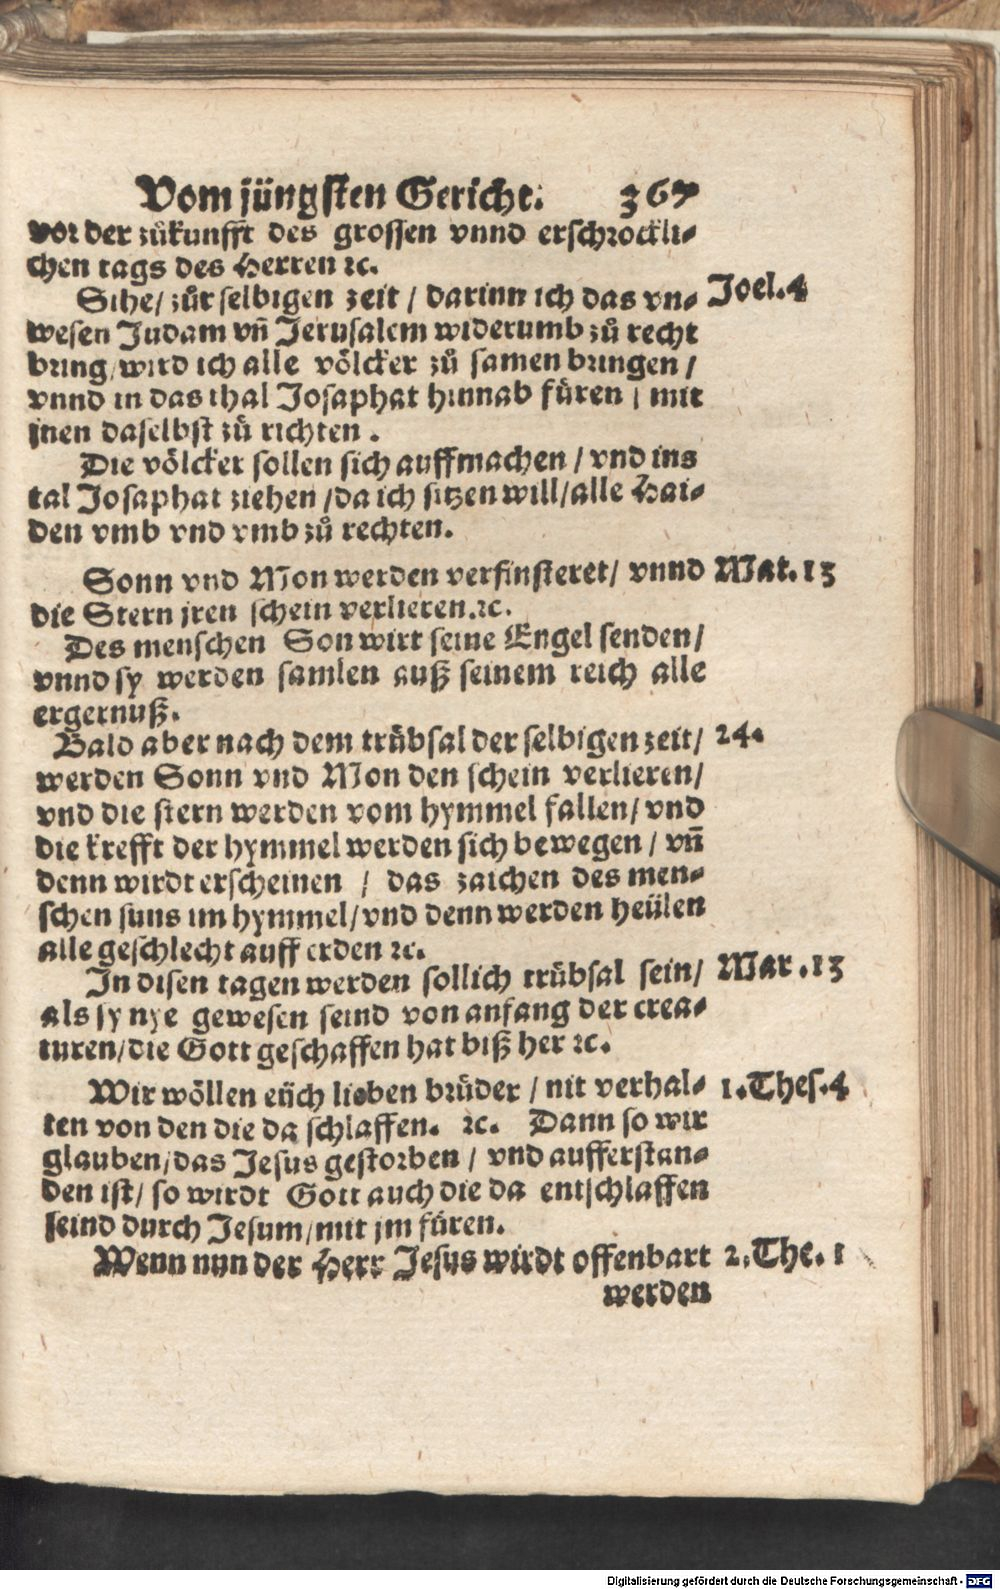 Vom jüngsten Gericht. 367
vor der zůkunfft des grossen vnnd erschrockli⸗
chen tags des Herren ꝛc.
Sihe/ zůr selbigen zeit / darinn ich das vn⸗ Joel.4
wesen Judam vñ Jerusalem widerumb zů recht
bring/ wird ich alle völcker zů samen bringen /
vnnd in das thal Josaphat hinnab füren / mit
jnen daselbst zů richten .
Die völcker sollen sich auffmachen / vnd ins
tal Josaphat ziehen /da ich sitzen will/alle Hai⸗
den vmb vnd vmb zů rechten.
Sonn vnd Mon werden verfinsteret/ vnnd Mat.13
die Stern jren schein verlieren.ꝛc.
Des menschen Son wirt seine Engel senden/
vnnd sy werden samlen auß seinem reich alle
ergernuß.
Bald aber nach dem trübsal der selbigen zeit/ 24.
werden Sonn vnd Mon den schein verlieren/
vnd die stern werden vom hymmel fallen/ vnd
die krefft der hymmel werden sich bewegen / vñ
denn wirdt erscheinen / das zaichen des men⸗
schen suns im hymmel/ vnd denn werden heülen
alle geschlecht auff erden ꝛc.
In disen tagen werden sollich trübsal sein/ Mar.13
als sy nye gewesen seind von anfang der crea⸗
turen/die Gott geschaffen hat biß her ꝛc.
Wir wöllen eüch lieben brüder / nit verhal⸗ 1.Thes.4
ten von den die da schlaffen. ꝛc. Dann so wir
glauben/das Jesus gestorben / vnd aufferstan⸗
den ist/ so wirdt Gott auch die da entschlaffen
seind durch Jesum/mit jm füren.
Wenn nun der Herr Jesus wirdt offenbart 2.The. 1
werden
Digitalisierung gefördert durch die Deutsche Forschungsgemeinschaft - DFG